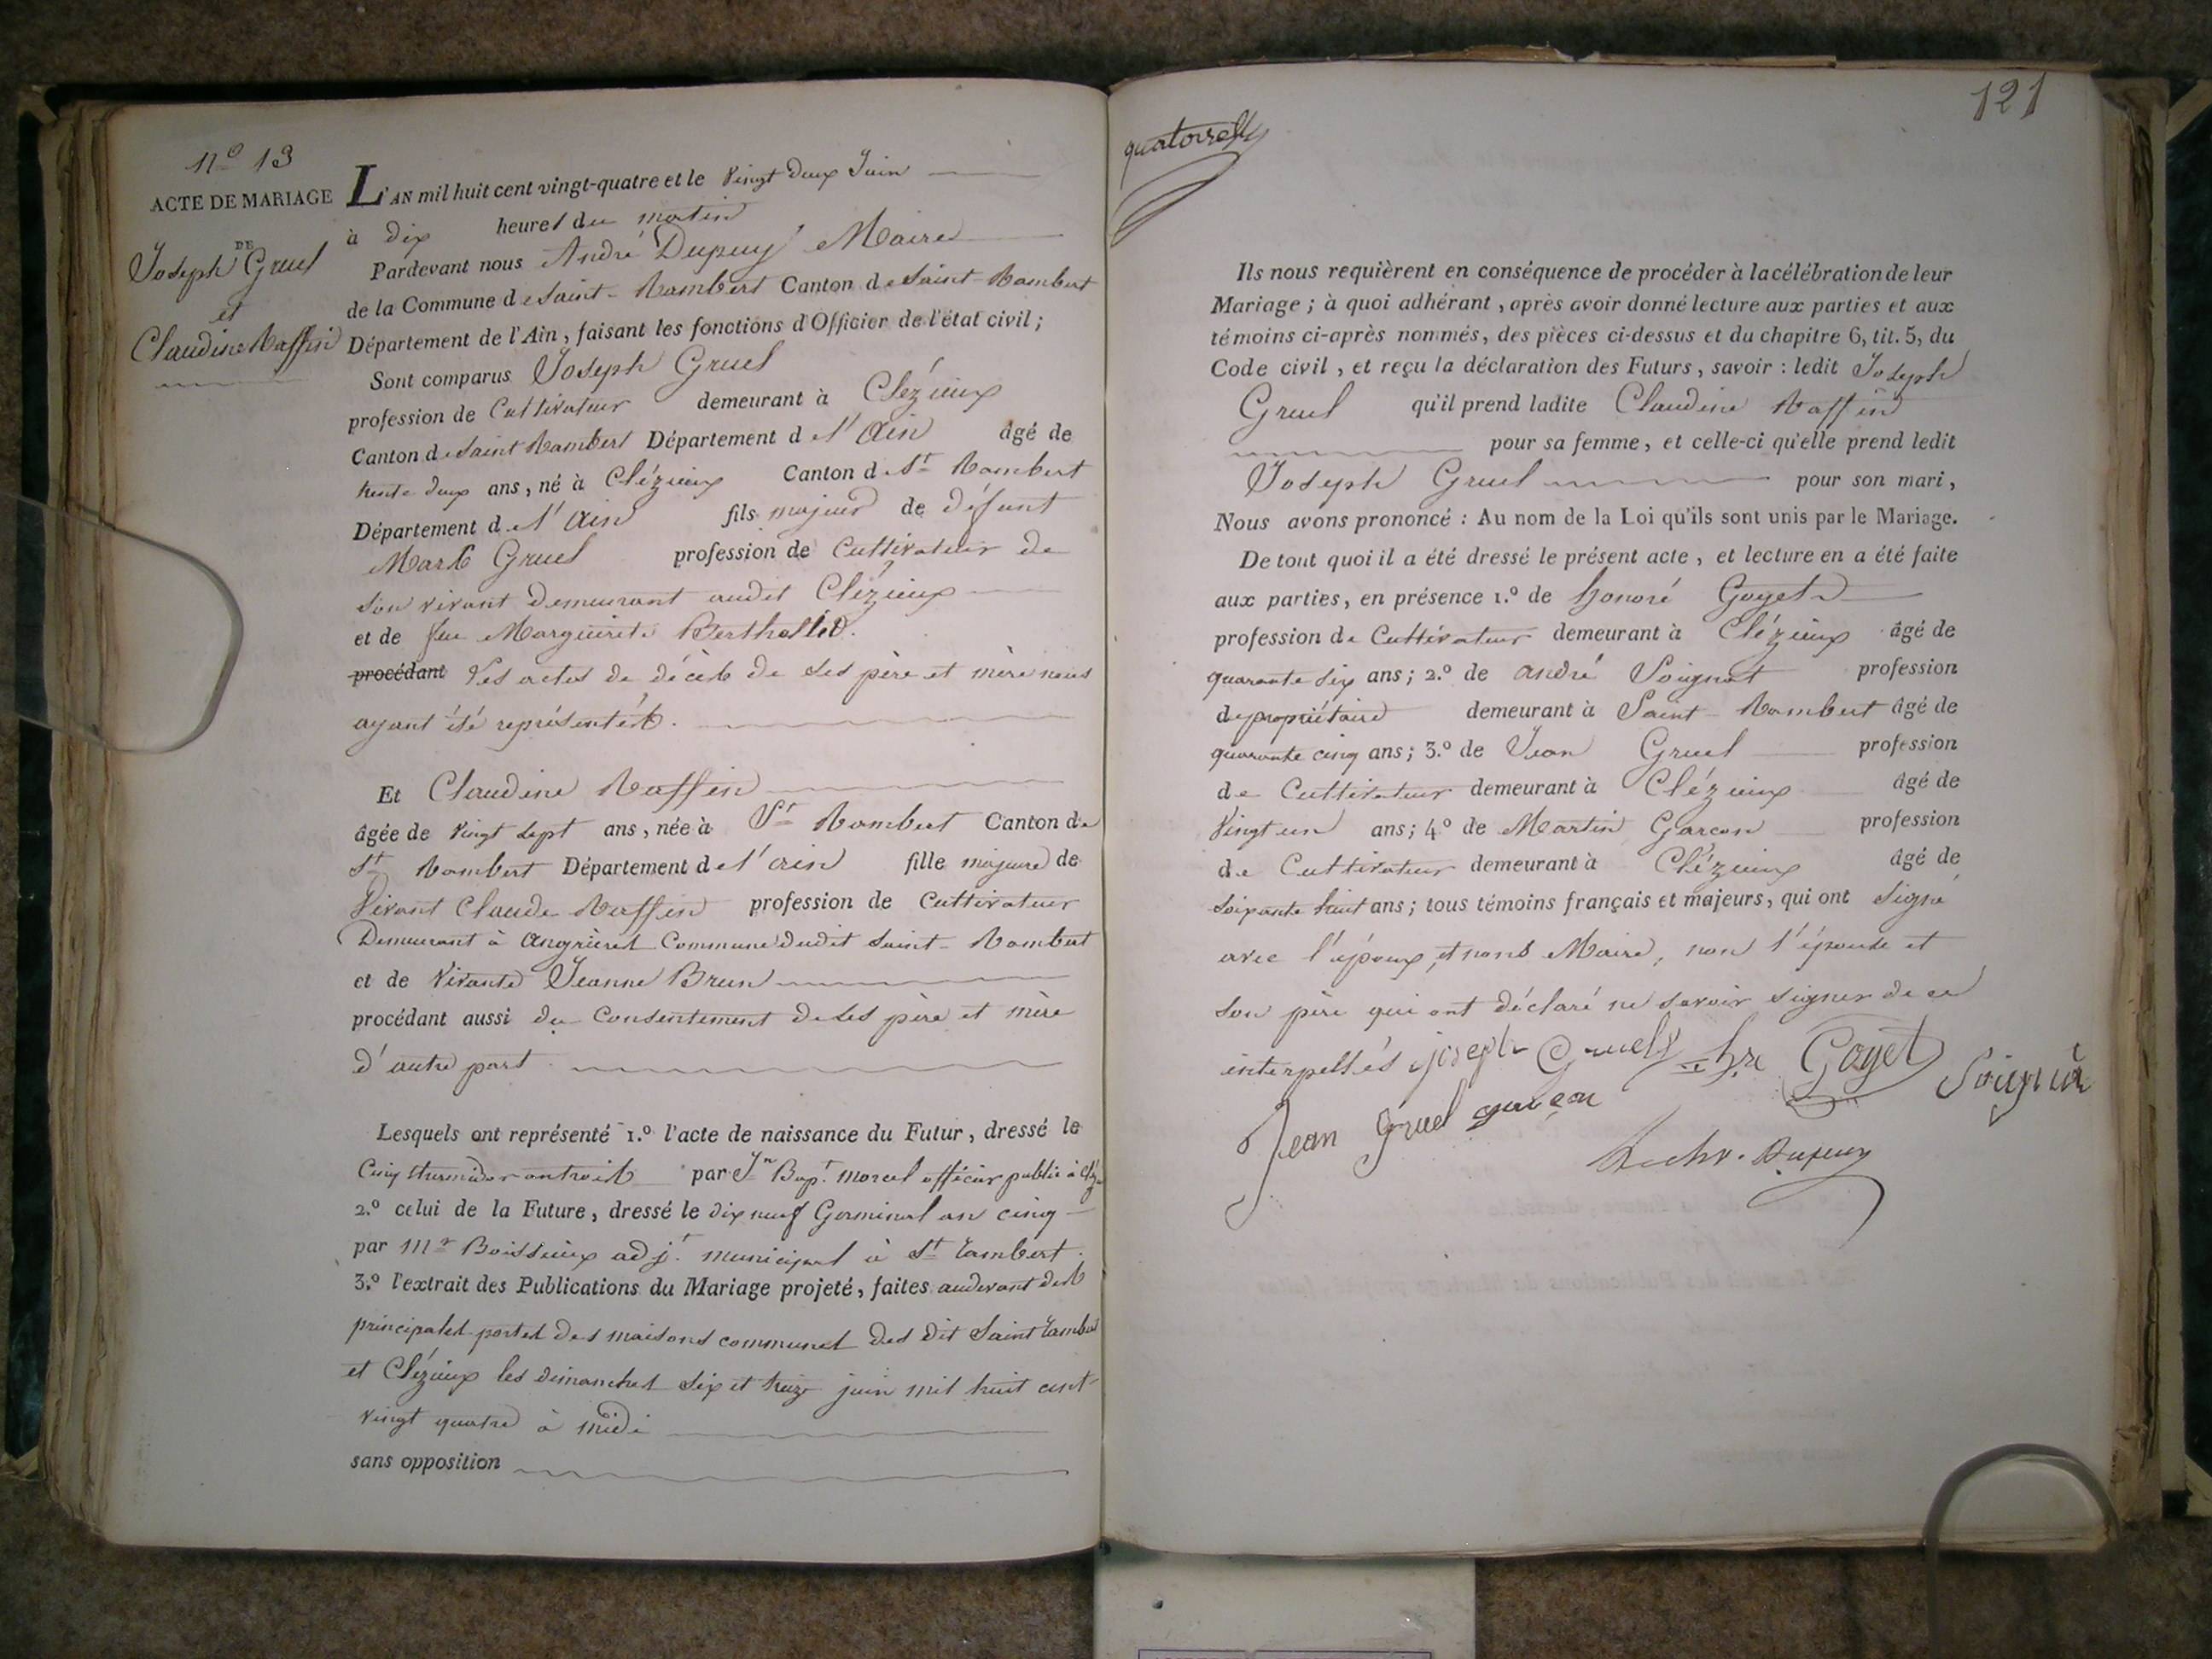 nº 13
ACTE DE MARIAGE
DE
Joseph Gruel
et
Claudine Raffin
L'AN mil huit cent vingt-quatre et le vingt deux Juin
à dix heures du matin
Pardevant nous André Dupuy Maire
de la Commune de Saint-Rambert Canton de Saint-Rambert
Département de l'Ain, faisant les fonctions d'Officier de l'état civil;
Sont comparus Joseph Gruel
profession de Cultivateur demeurant à Clézieux
Canton de Saint Rambert Département de l'Ain âgé de
trente deux ans, né à Clézieux Canton de St Rambert
Département de l'Ain fils majeur de défunt
Marc Gruel profession de Cultivateur de
son vivant demeurant audit Clézieux
et de feu Marguerite Berthollet.
procédant Les actes de décès de ses père et mère nous
ayant été représentés.
Et Claudine Raffin
âgée de vingt sept ans, née à St Rambert Canton de
St Rambert Département de l'ain fille majeure de
Vivant Claude Raffin profession de Cultivateur
Demeurant à Angrières Commune dudit Saint-Rambert
et de Vivante Jeanne Brun
procédant aussi du Consentement de ses père et mère
d'autre part.
Lesquels ont représenté 1.º l'acte de naissance du Futur, dressé le
Cinq thermidor an trois par Jn Bapt. morel officier public à Cléz
2.º celui de la Future, dressé le dix neuf Germinal an cinq
par Mr Boissieux adjt. municipal à St Rambert.
3.º l'extrait des Publications du Mariage projeté, faites audevant des
principales portes des maisons communes des dit Saint Rambert
et Clézieux les dimanches six et treize juin mil huit cent
vingt quatre à midi
sans opposition
121
quatorze
Ils nous requièrent en conséquence de procéder à la célébration de leur
Mariage; à quoi adhérant, après avoir donné lecture aux parties et aux
témoins ci-après nommés, des pièces ci-dessus et du chapitre 6, tit. 5, du
Code civil, et reçu la déclaration des Futurs, savoir: ledit Joseph
Gruel qu'il prend ladite Claudine Raffin
pour sa femme, et celle-ci qu'elle prend ledit
Joseph Gruel pour son mari,
Nous avons prononcé: Au nom de la Loi qu'ils sont unis par le Mariage.
De tout quoi il a été dressé le présent acte, et lecture en a été faite
aux parties, en présence 1.º de honoré Goyet
profession de Cultivateur demeurant à Clézieux âgé de
quarante six ans; 2.º de andré Soignat profession
de propriétaire demeurant à Saint-Rambert âgé de
quarante cinq ans; 3.º de Jean Gruel profession
de Cultivateur demeurant à Clézieux âgé de
vingt un ans; 4º de Martin Garçon profession
de Cultivateur demeurant à Clézieux âgé de
soixante huit ans; tous témoins français et majeurs, qui ont signé
avec l'époux, et nous Maire, non l'épouse et
son père qui ont déclaré ne savoir signer de ce
interpellés joseph Gruel hre Goyet Soignat
Jean gruel garçon
Dupuy